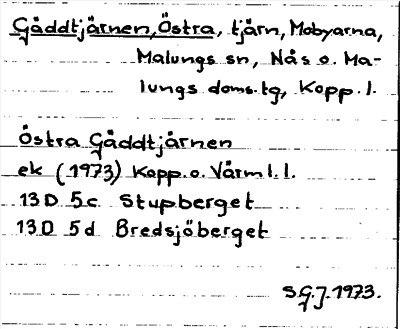 Gåddtjärnen, Östra, tjärn, Mobyarna,
Malungs sn, Nås o. Ma-
lungs doms.tg, Kopp. l.
Östra Gåddtjärnen
ek (1973) Kopp. o. Värml. l.
13D 5c Stupberget
13D 5d Bredsjöberget
S.G.J. 1973.